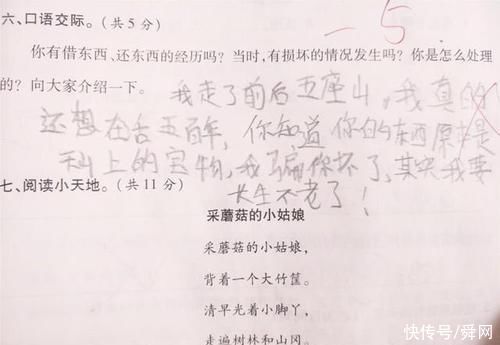 六、口语交际。(共5分)
-5
你有借东西、还东西的经历吗?当时,有损坏的情况发生吗?你是怎么处理
的?向大家介绍一下。
我走了前后五座山,我真的
还想在舌五百年,你知道你的东西原本是
天上的宝物,我骗你坏了,其实我要
长生不老了!
七、阅读小天地。(共11分)
采蘑菇的小姑娘
采蘑菇的小姑娘,
背着一个大竹筐。
清早光着小脚丫,
走遍树林和山冈。
快传号/舜网